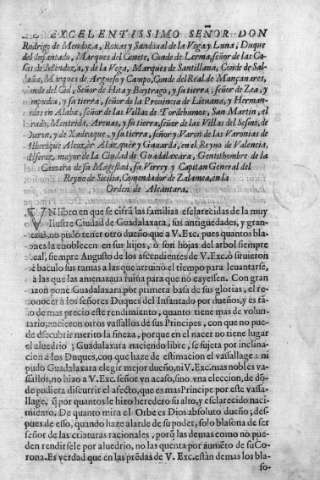 EXCELENTISSIMO SEÑOR DON
Rodrigo de Mendoza, Rojas y Sandoual de la Vega y Luna, Duque
del Infantado, Marques del Cenete, Conde de Lerma, señor de las Ca-
sas de Mendoza, y de la Vega, Marques de Santillana, Conde de Sal-
daña, Marques de Argueso y Campo, Conde del Real de Mançanares,
Conde del Cid, Señor de Hita y Buytrago, y su tierra, señor de Zea, y
Ampudia, y su tierra, señor de la Prouincia de Liebana, y Herman-
dades en Alaba, señor de las Villas de Tordehumos, San Martin, el
Prado, Mentrida, Arenas, y su tierra, señor de las Villas del Sesmo, de
Duron, y de Xadraque, y su tierra, señor y Varon de las Varonias de
Alberique Alcozer, Alazquer y Gauarda, en el Reyno de Valencia,
Alferez, mayor de la Ciudad de Guadalaxara, Gentilhombre de la
Camara de su Magestad, su Virrey y Capitan General del
Reyno de Sicilia, Comendador de Zalamea, en la
Orden de Alcantara.
VN libro en que se cifra las familias esclarecidas de la muy
Ilustre Ciudad de Guadalaxara, sus antiguedades, y gran-
no pudo tener otro dueño que a V. Exc. pues quantos bla-
la ennoblecen en sus hijos, ò son hojas del arbol siempre
Real, siempre Augusto de los ascendientes de V. Exc. ò siruieron
de baculo sus ramas a las que arruinò el tiempo para leuantarse,
à las que las amenazaua ruina para que no cayessen. Con gran
razon pone Guadalaxara por primera basa de sus glorias, el re-
conocer à los señores Duques del Infantado por dueños, y es ta-
to de mas precio este rendimiento, quanto tiene mas de volun-
tario, nacieron otros vassallos de sus Principes, con que no pue-
de descubrir merito la fineza, porque en el nacer no tiene lugar
el aluedrio; Guadalaxara naciendo libre, se sujeta por inclina-
cion à los Duques, con que haze de estimacion el vassallage à ni
pudo Guadalaxara elegir mejor dueño, ni V. Exc. mas nobles va-
ssallos, no hizo à V. Exc. señor vn acaso, sino vna eleccion, de dõ-
de pudiera discurrir el afecto, que es mas Principe por este vassa-
llage, que por quantos le hizo heredero su alto, y esclarecido naci-
miento. De quanto mira el Orbe es Dios absoluto dueño; des-
pues de esso, quando haze alarde de su poder, solo blasona de ser
señor de las criaturas racionales, porq las demas como no pue-
den rendirsele por aluedrio, no las quenta por aumẽto de su Co-
rona. Es verdad que en las prẽdas de V. Exc. estàn demas los bla-
so-